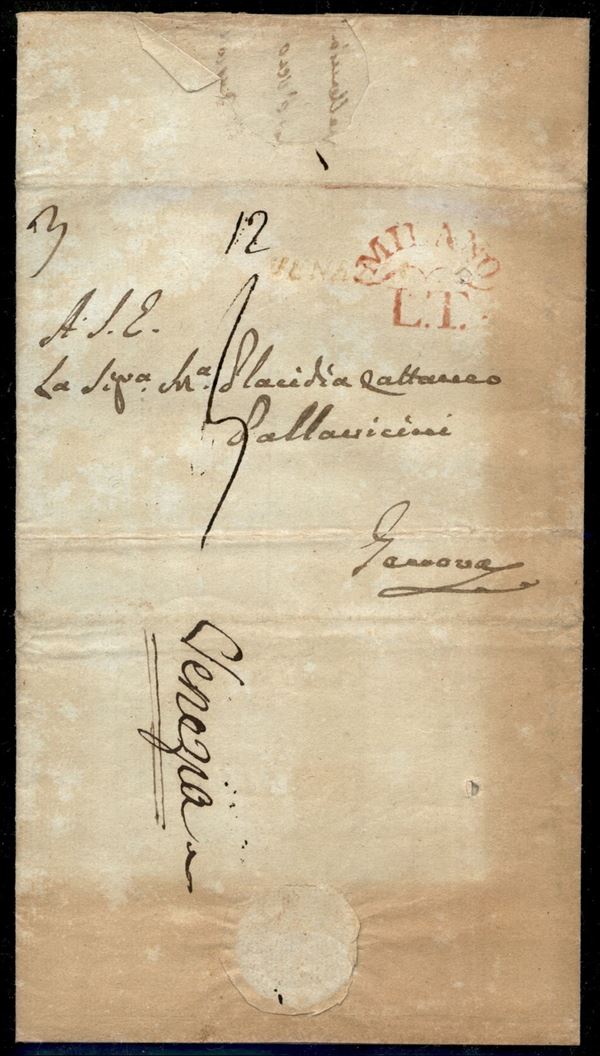 3
12
MILANO
L.T.
A. S. E.
La Sigra. Ma. Placidia Cattaneo
Pallavicini
Genova
Venezia